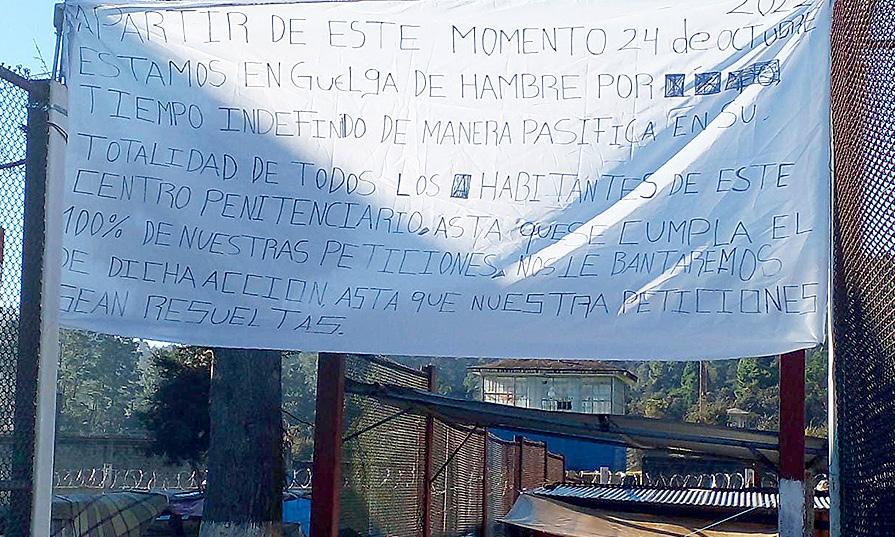 APARTIR DE ESTE MOMENTO 24 de OCTUBRE
ESTAMOS EN GUelgA DE HAMBRE POR
TIEMPO INDEFINDO DE MANERA PASIFICA EN SU.
TOTALIDAD DE TODOS LOS HABITANTES DE ESTE
CENTRO PENITENCIARIO, ASTA QUESE CUMPLA EL
100% DE NUESTRAS PETICIONES, NOSLE BANTAREMOS
DE DICHA ACCION ASTA QUE NUESTRA PETICIONES
SEAN RESUELTAS.